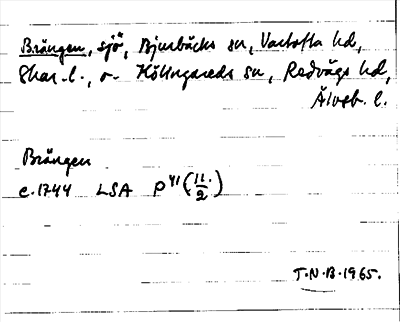 Brängen, sjö, Bjurbäcks sn, Vartofta hd,
Skar. l., o. Kölingareds sn, Redvägs hd,
Älvsb. l.
Brängen
c. 1744 LSA P 41 (11./2)
T.N.B. 1965.